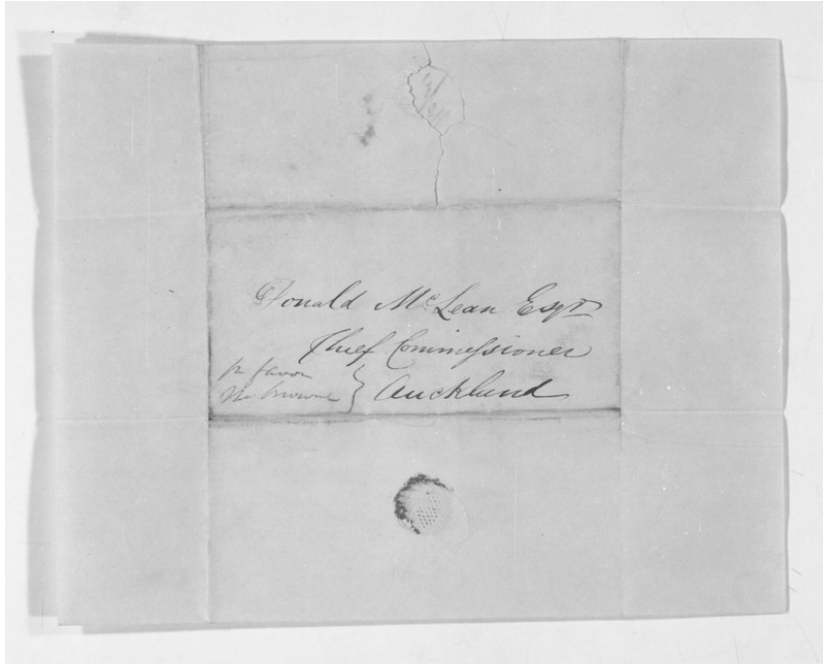 Donald McLean Esqr
Chief Commissioner
pr favor
Mr browne } Auckland